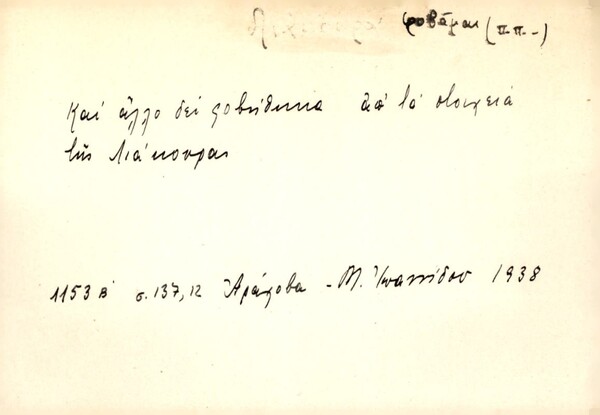 φοβᾶμαι (π.π. -)
Καί ἄλλο δέ φοβήθηκα ἀπ' τά στοιχειά
τῆς Λιάκουρας
1153 Β' σ. 137, 12 Ἀράχοβα - Μ. Ἰωαννίδου 1938